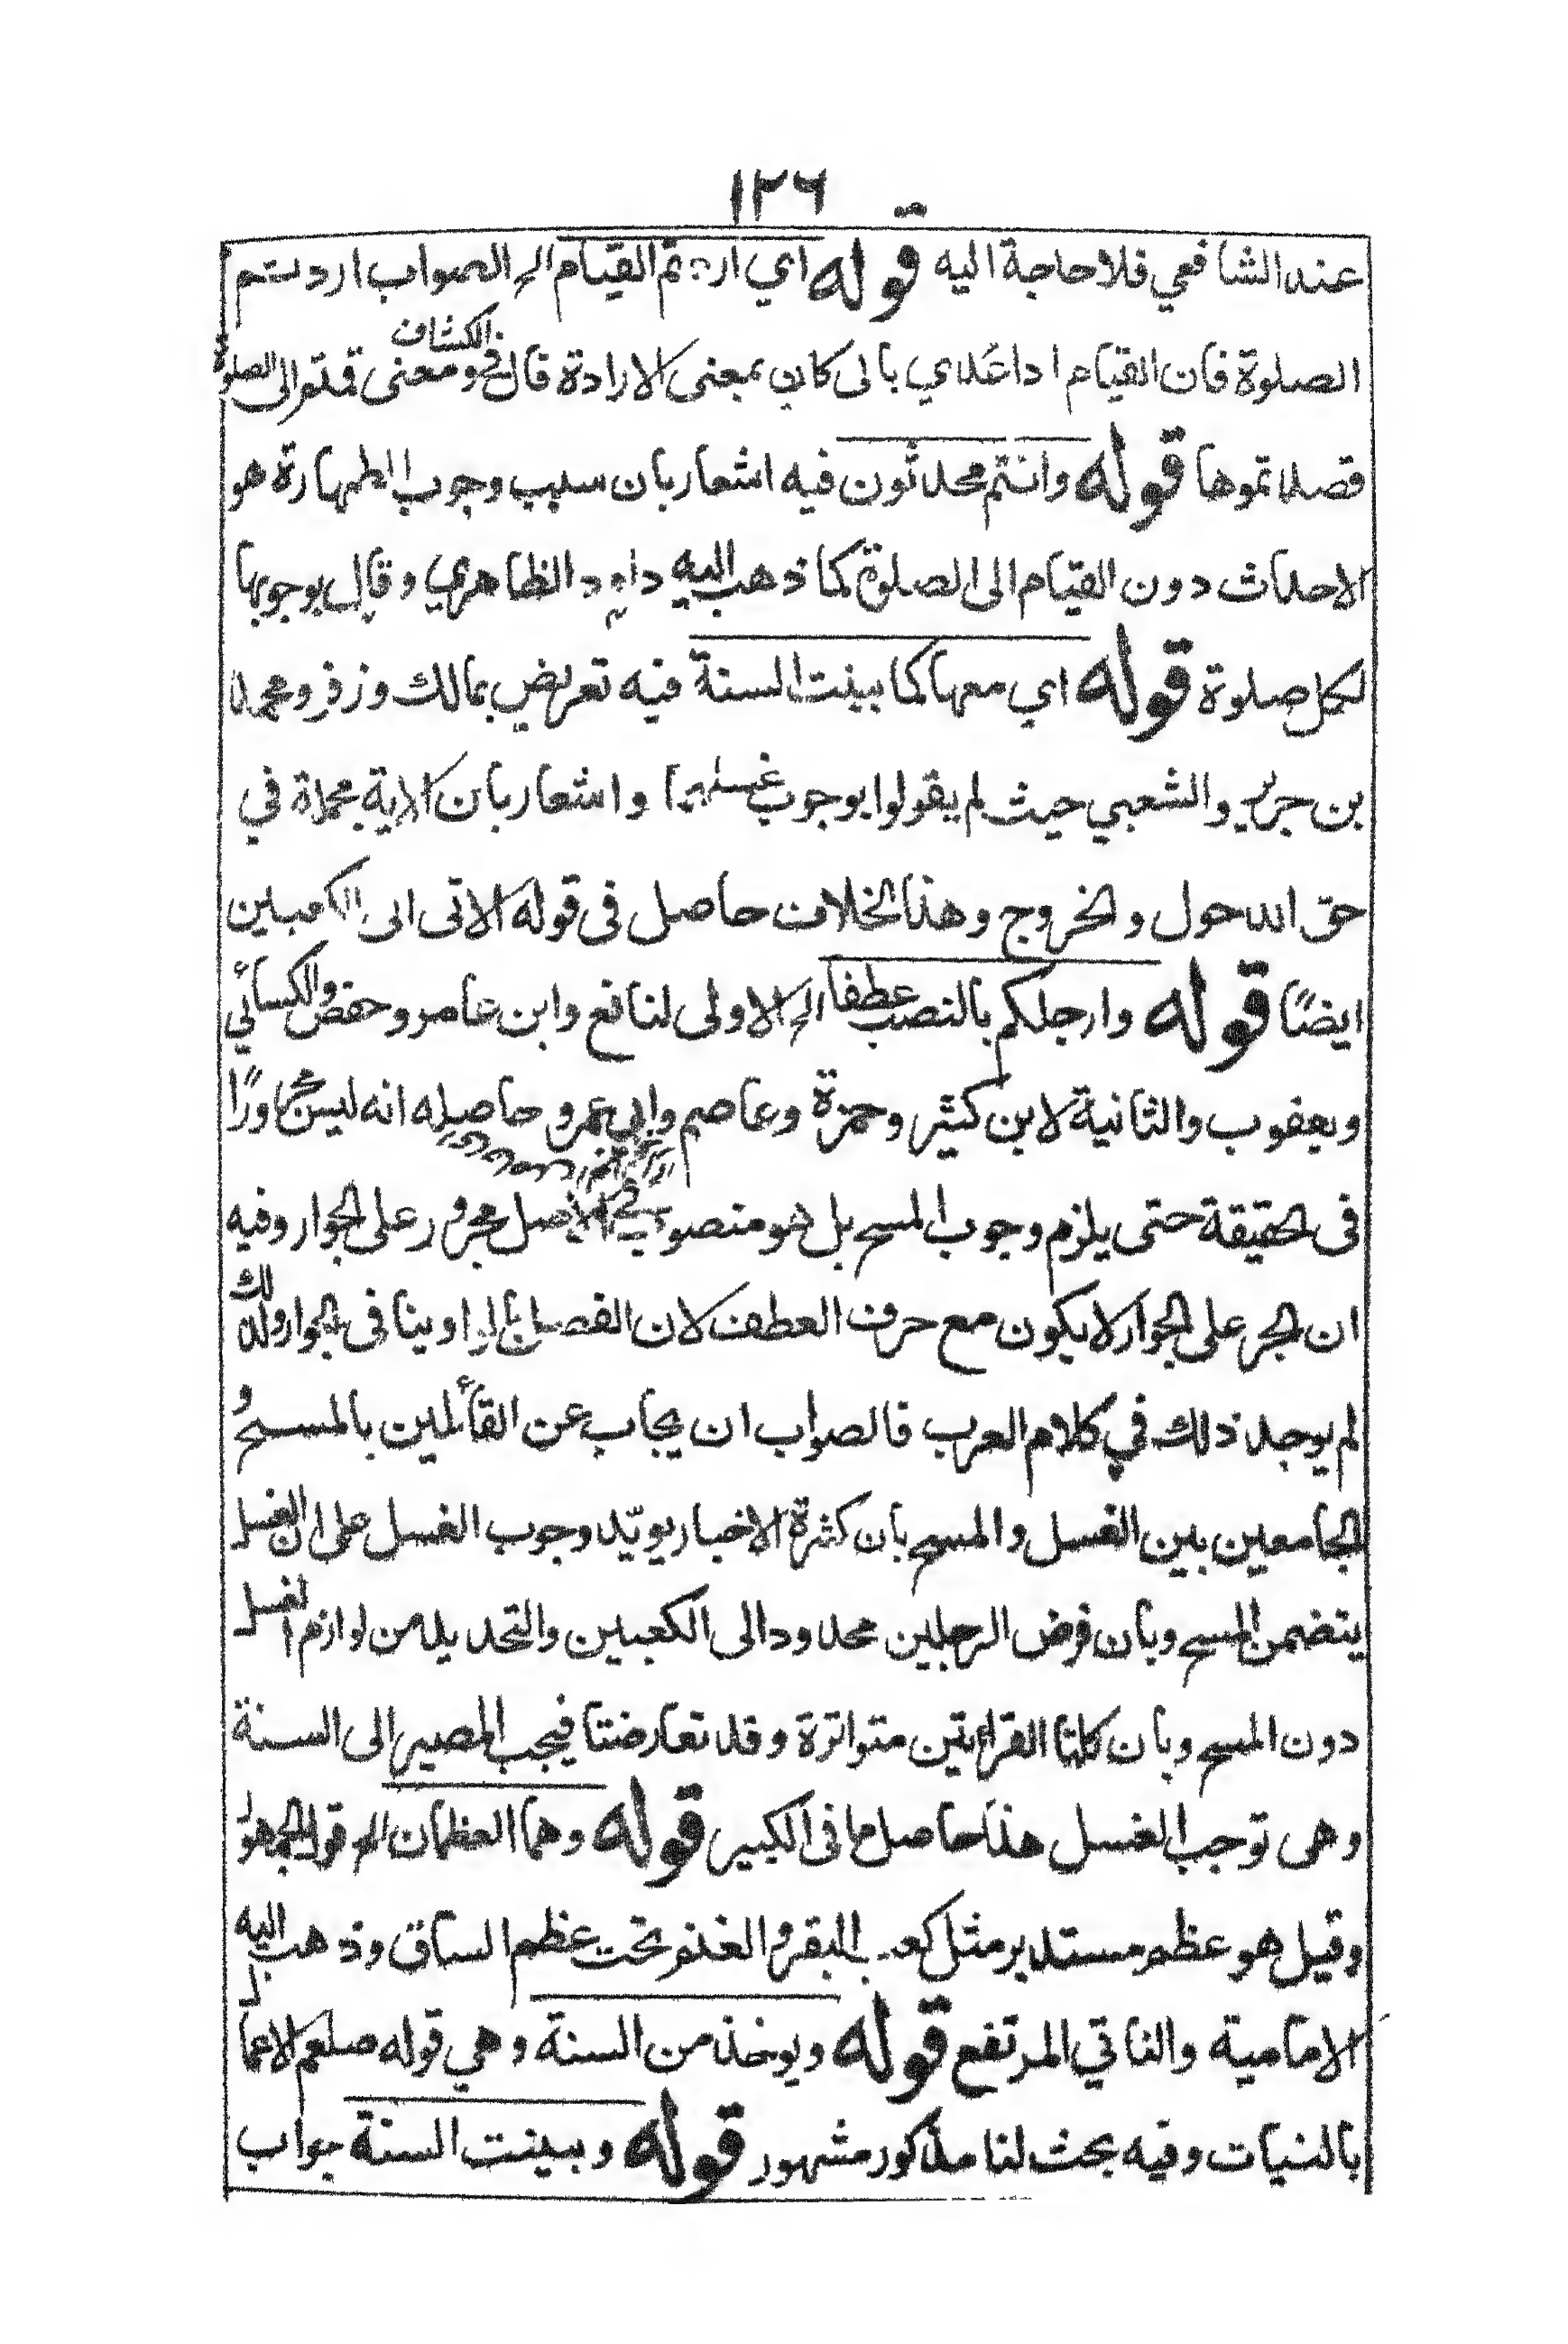 ١٢٦
عند الشافعي فلا حاجة اليه قوله اي اردتم القيام الخ الصواب اردتم
الصلوة فان القيام اذا عُدي بالى كان بمعنى الارادة قال في الكشاف ومعنى قمتم الى الصلوة
قصدتموها قوله وانتم محدثون فيه اشعار بان سبب وجوب الطهارة هو
الاحداث دون القيام الى الصلوة كما ذهب اليه داود الظاهري وقال بوجوبها
لكل صلوة قوله اي معها كما بينت السنة فيه تعريض بمالك وزفر ومحمد
بن جرير والشعبي حيث لم يقولوا بوجوب غسلهما واشعار بان الاية مجملة في
حق الدخول والخروج وهذا الخلاف حاصل فى قوله الاتى الى الكعبين
ايضًا قوله وارجلكم بالنصب عطفا الخ الاولى لنافع وابن عامر وحفص والكسائي
ويعقوب والثانية لابن كثير وحمزة وعاصم وابي عمرو حاصله انه ليس مجرورًا
فى الحقيقة حتى يلزم وجوب المسح بل هو منصوب في الاصل مجرور على الجوار وفيه
ان الجر على الجوار لا يكون مع حرف العطف لان الفصل بالواو ينافى الجوار ولذلك
لم يوجد ذلك في كلام العرب فالصواب ان يجاب عن القائلين بالمسح و
الجامعين بين الغسل والمسح بان كثرة الاخبار يويّد وجوب الغسل على ان الغسل
يتضمن المسح وبان فرض الرجلين محدود الى الكعبين والتحديد من لوازم الغسل
دون المسح وبان كلتا القرائتين متواترة وقد تعارضتا فيجب المصير الى السنة
وهى توجب الغسل هذا حاصل ما فى الكبير قوله وهما العظمان الخ قول الجمهور
وقيل هو عظم مستدير مثل كعب البقر والغنم تحت عظم الساق وذهب اليه
الامامية والناتي المرتفع قوله ويوخذ من السنة وهي قوله صلعم الاعمال
بالنيات وفيه بحث لنا مذكور مشهور قوله وبينت السنة جواب